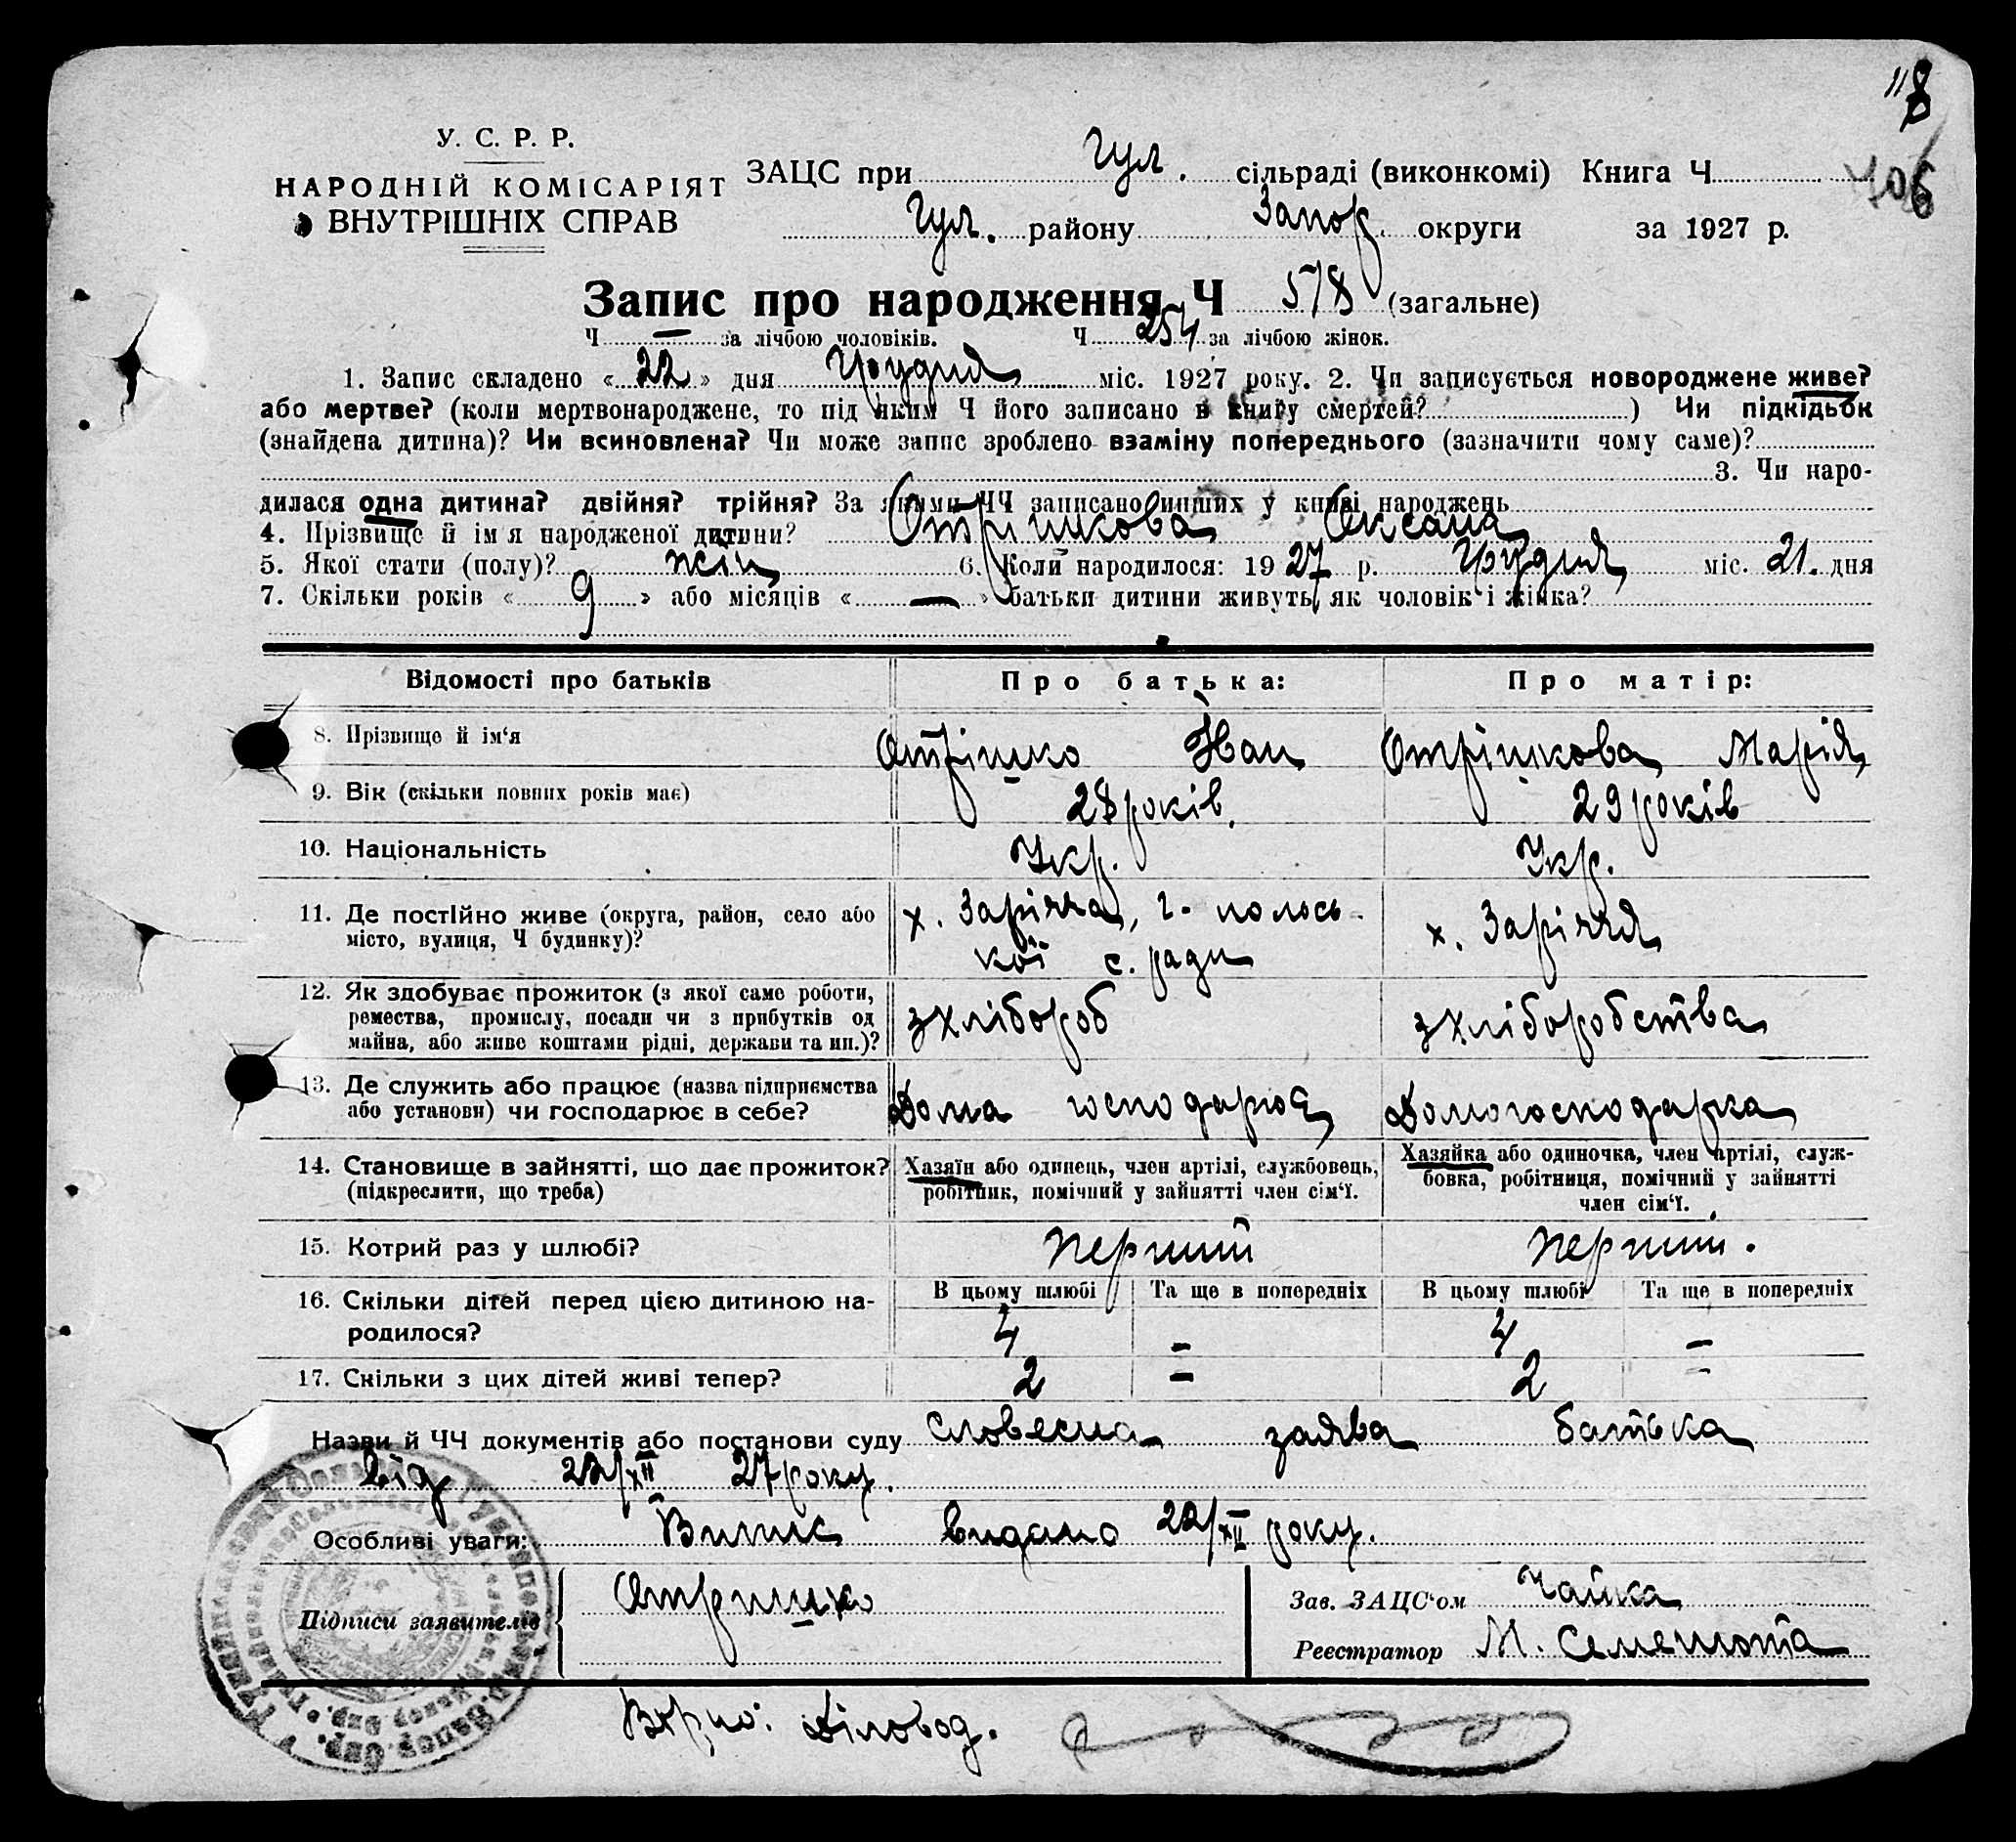 118
406
У. С. Р. Р.
НАРОДНІЙ КОМІСАРІЯТ
ВНУТРІШНІХ СПРАВ
ЗАЦС при Гул. сільраді (виконкомі) Книга Ч
Гул. району Запор. округи за 1927 р.
Запис про народження Ч 578 (загальне)
Ч — за лічбою чоловіків. Ч 254 за лічбою жінок.
1. Запис складено «22» дня Грудня міс. 1927 року. 2. Чи записується новороджене живе?
або мертве? (коли мертвонароджене, то під яким Ч його записано в книгу смертей? ) Чи підкідьок
(знайдена дитина)? Чи всиновлена? Чи може запис зроблено взаміну попереднього (зазначити чому саме)?
3. Чи наро-
дилася одна дитина? двійня? трійня? За якими ЧЧ записано инших у книзі народжень
4. Прізвище й ім'я народженої дитини? Отрішкова Оксана
5. Якої стати (полу)? жін 6. Коли народилося: 1927 р. Грудня міс. 21. дня
7. Скільки років «9» або місяців «—» батьки дитини живуть як чоловік і жінка?
Відомості про батьків Про батька: Про матір:
8. Прізвище й ім'я Отрішко Йван Отрішкова Марія
9. Вік (скільки повних років має) 28 років. 29 років
10. Національність Укр. Укр.
11. Де постійно живе (округа, район, село або х. Заріччя, г. польсь-
місто, вулиця, Ч будинку)? кої с. ради х. Заріччя
12. Як здобуває прожиток (з якої саме роботи,
ремества, промислу, посади чи з прибутків од зхлібороб зхліборобства
майна, або живе коштами рідні, держави та ин.)?
13. Де служить або працює (назва підприємства Дома господарює Домогосподарка
або установи) чи господарює в себе?
14. Становище в зайнятті, що дає прожиток? Хазяїн або одинець, член артілі, службовець, Хазяйка або одиночка, член артілі, служ-
(підкреслити, що треба) робітник, помічний у зайнятті член сім'ї. бовка, робітниця, помічний у зайнятті
член сім'ї.
15. Котрий раз у шлюбі? перший перший.
В цьому шлюбі Та ще в попередніх В цьому шлюбі Та ще в попередніх
16. Скільки дітей перед цією дитиною на-
родилося? 4 — 4 —
17. Скільки з цих дітей живі тепер? 2 = 2 =
Назви й ЧЧ документів або постанови суду Словесна заява батька
від 22/XII 27 року.
Особливі уваги: Випис видано 22/XII року.
Підписи заявителів Отришко
Зав. ЗАЦС'ом Чайка
Реєстратор М.
Вірно: Діловод.